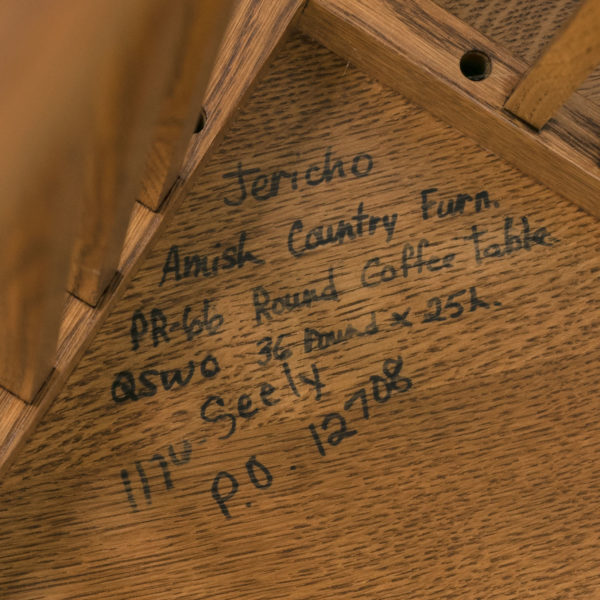 Jericho
Amish Country Furn.
PR-66 Round Coffee table
QSWO 36 round x 25h.
117U-Seely
P.O. 12708